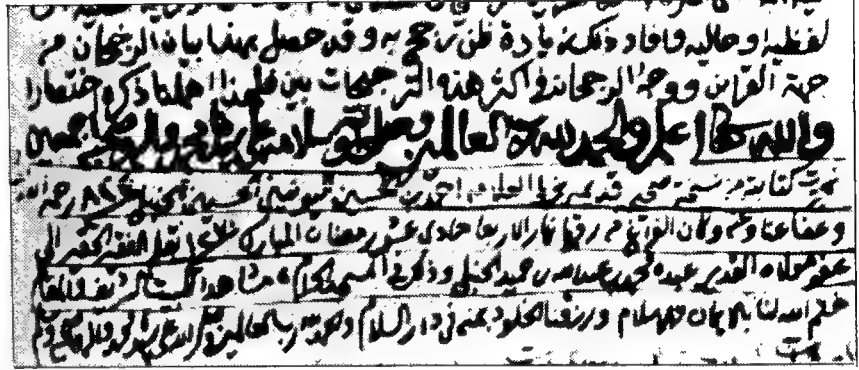 لفظية او حالية وافاد ذلك زيادة ظن رجح به وقد حصل بهذا بيان الرجحان من
جهة القرائن ووجه الرجحان في اكثر هذه الترجيحات بين فلهذا اهملنا ذكره اختصارا
والله تعالى اعلم والحمد لله رب العالمين وصلى الله وسلامه على
تمت كتابته من نسخة صحيحة قديمة بخط العلامة احمد بن رحمه الله
وعفا عنا وعنه وكان الفراغ من رقمها نهار الاربعا حادي عشر رمضان المبارك بقلم الفقير الحقير الى
عفو مولاه القدير عبده محمد بن عبد الله بن حميد الحنبلي وذلك في المسجد الحرام مشاهدا للبيت الشريف والمقام
ختم الله لنا بالايمان والاسلام ورزقنا الخلود بمنه في دار السلام والحمد لله رب العالمين